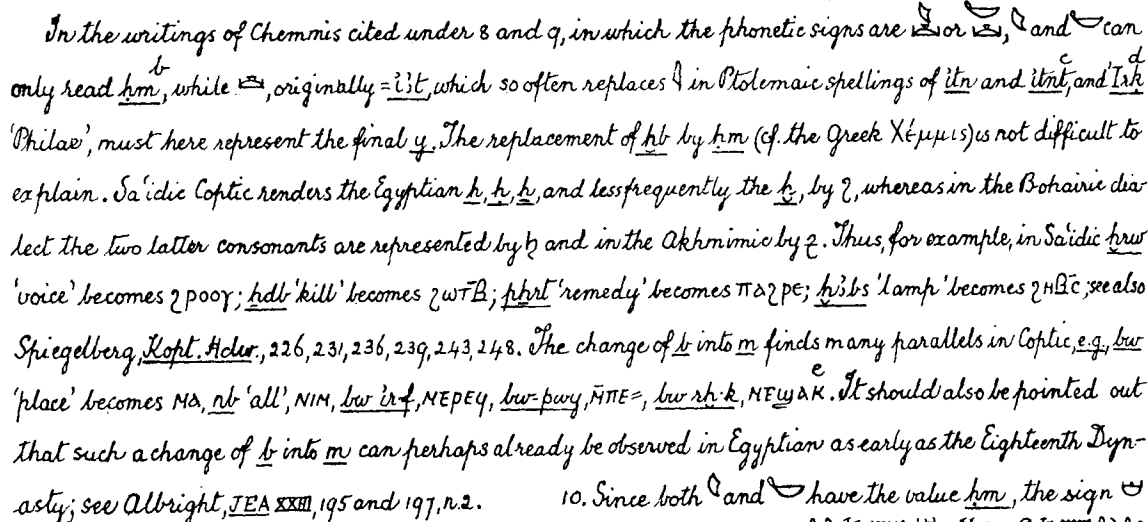 In the writings of Chemmis cited under 8 and 9, in which the phonetic signs are or , and can
only read ḥm ᵇ, while , originally = i͗ꜣt, which so often replaces in Ptolemaic spellings of i͗tn and i͗tnt ᶜ, and I͗rḳ ᵈ
'Philae', must here represent the final y. The replacement of ḫb by ḥm (cf. the Greek Χέμμις) is not difficult to
explain. Sa'idic Coptic renders the Egyptian h, ḥ, ẖ, and less frequently the ḫ, by ϩ, whereas in the Bohairic dia-
lect the two latter consonants are represented by ϧ and in the Akhmimic by ⳉ. Thus, for example, in Sa'idic ḫrw
'voice' becomes ϩⲣⲟⲟⲩ; ẖdb 'kill' becomes ϩⲱⲧⲃ̄; pẖrt 'remedy' becomes ⲡⲁϩⲣⲉ; ḫꜣbs 'lamp' becomes ϩⲏⲃ̄ⲥ; see also
Spiegelberg, Kopt. Hdw., 226, 231, 236, 239, 243, 248. The change of b into m finds many parallels in Coptic, e.g., bw
'place' becomes ⲙⲁ, nb 'all', ⲛⲓⲙ, bw i͗r·f, ⲙⲉⲣⲉϥ, bw-pwy, ⲙ̄ⲡⲉ=, bw rḫ·k, ⲙⲉϣⲁⲕ ᵉ. It should also be pointed out
that such a change of b into m can perhaps already be observed in Egyptian as early as the Eighteenth Dyn-
asty; see Albright, JEA XXIII, 195 and 197, n. 2. 10. Since both and have the value ḥm, the sign